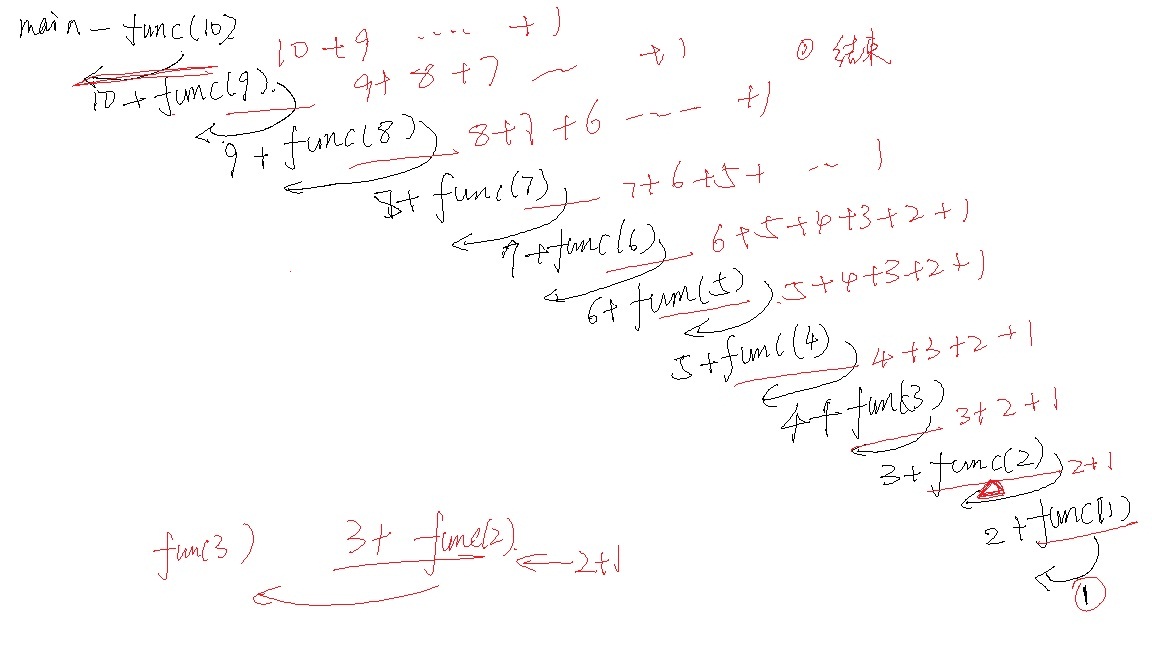 main - func(10)
10 + 9 .... + 1
① 结束
10 + func(9).
9 + 8 + 7 ~ + 1
9 + func(8)
8 + 7 + 6 --- + 1
8 + func(7)
7 + 6 + 5 + ... 1
7 + func(6)
6 + 5 + 4 + 3 + 2 + 1
6 + func(5)
5 + 4 + 3 + 2 + 1
5 + func(4)
4 + 3 + 2 + 1
4 + func(3)
3 + 2 + 1
3 + func(2)
2 + 1
2 + func(1)
func(3) 3 + func(2). ← 2+1
①